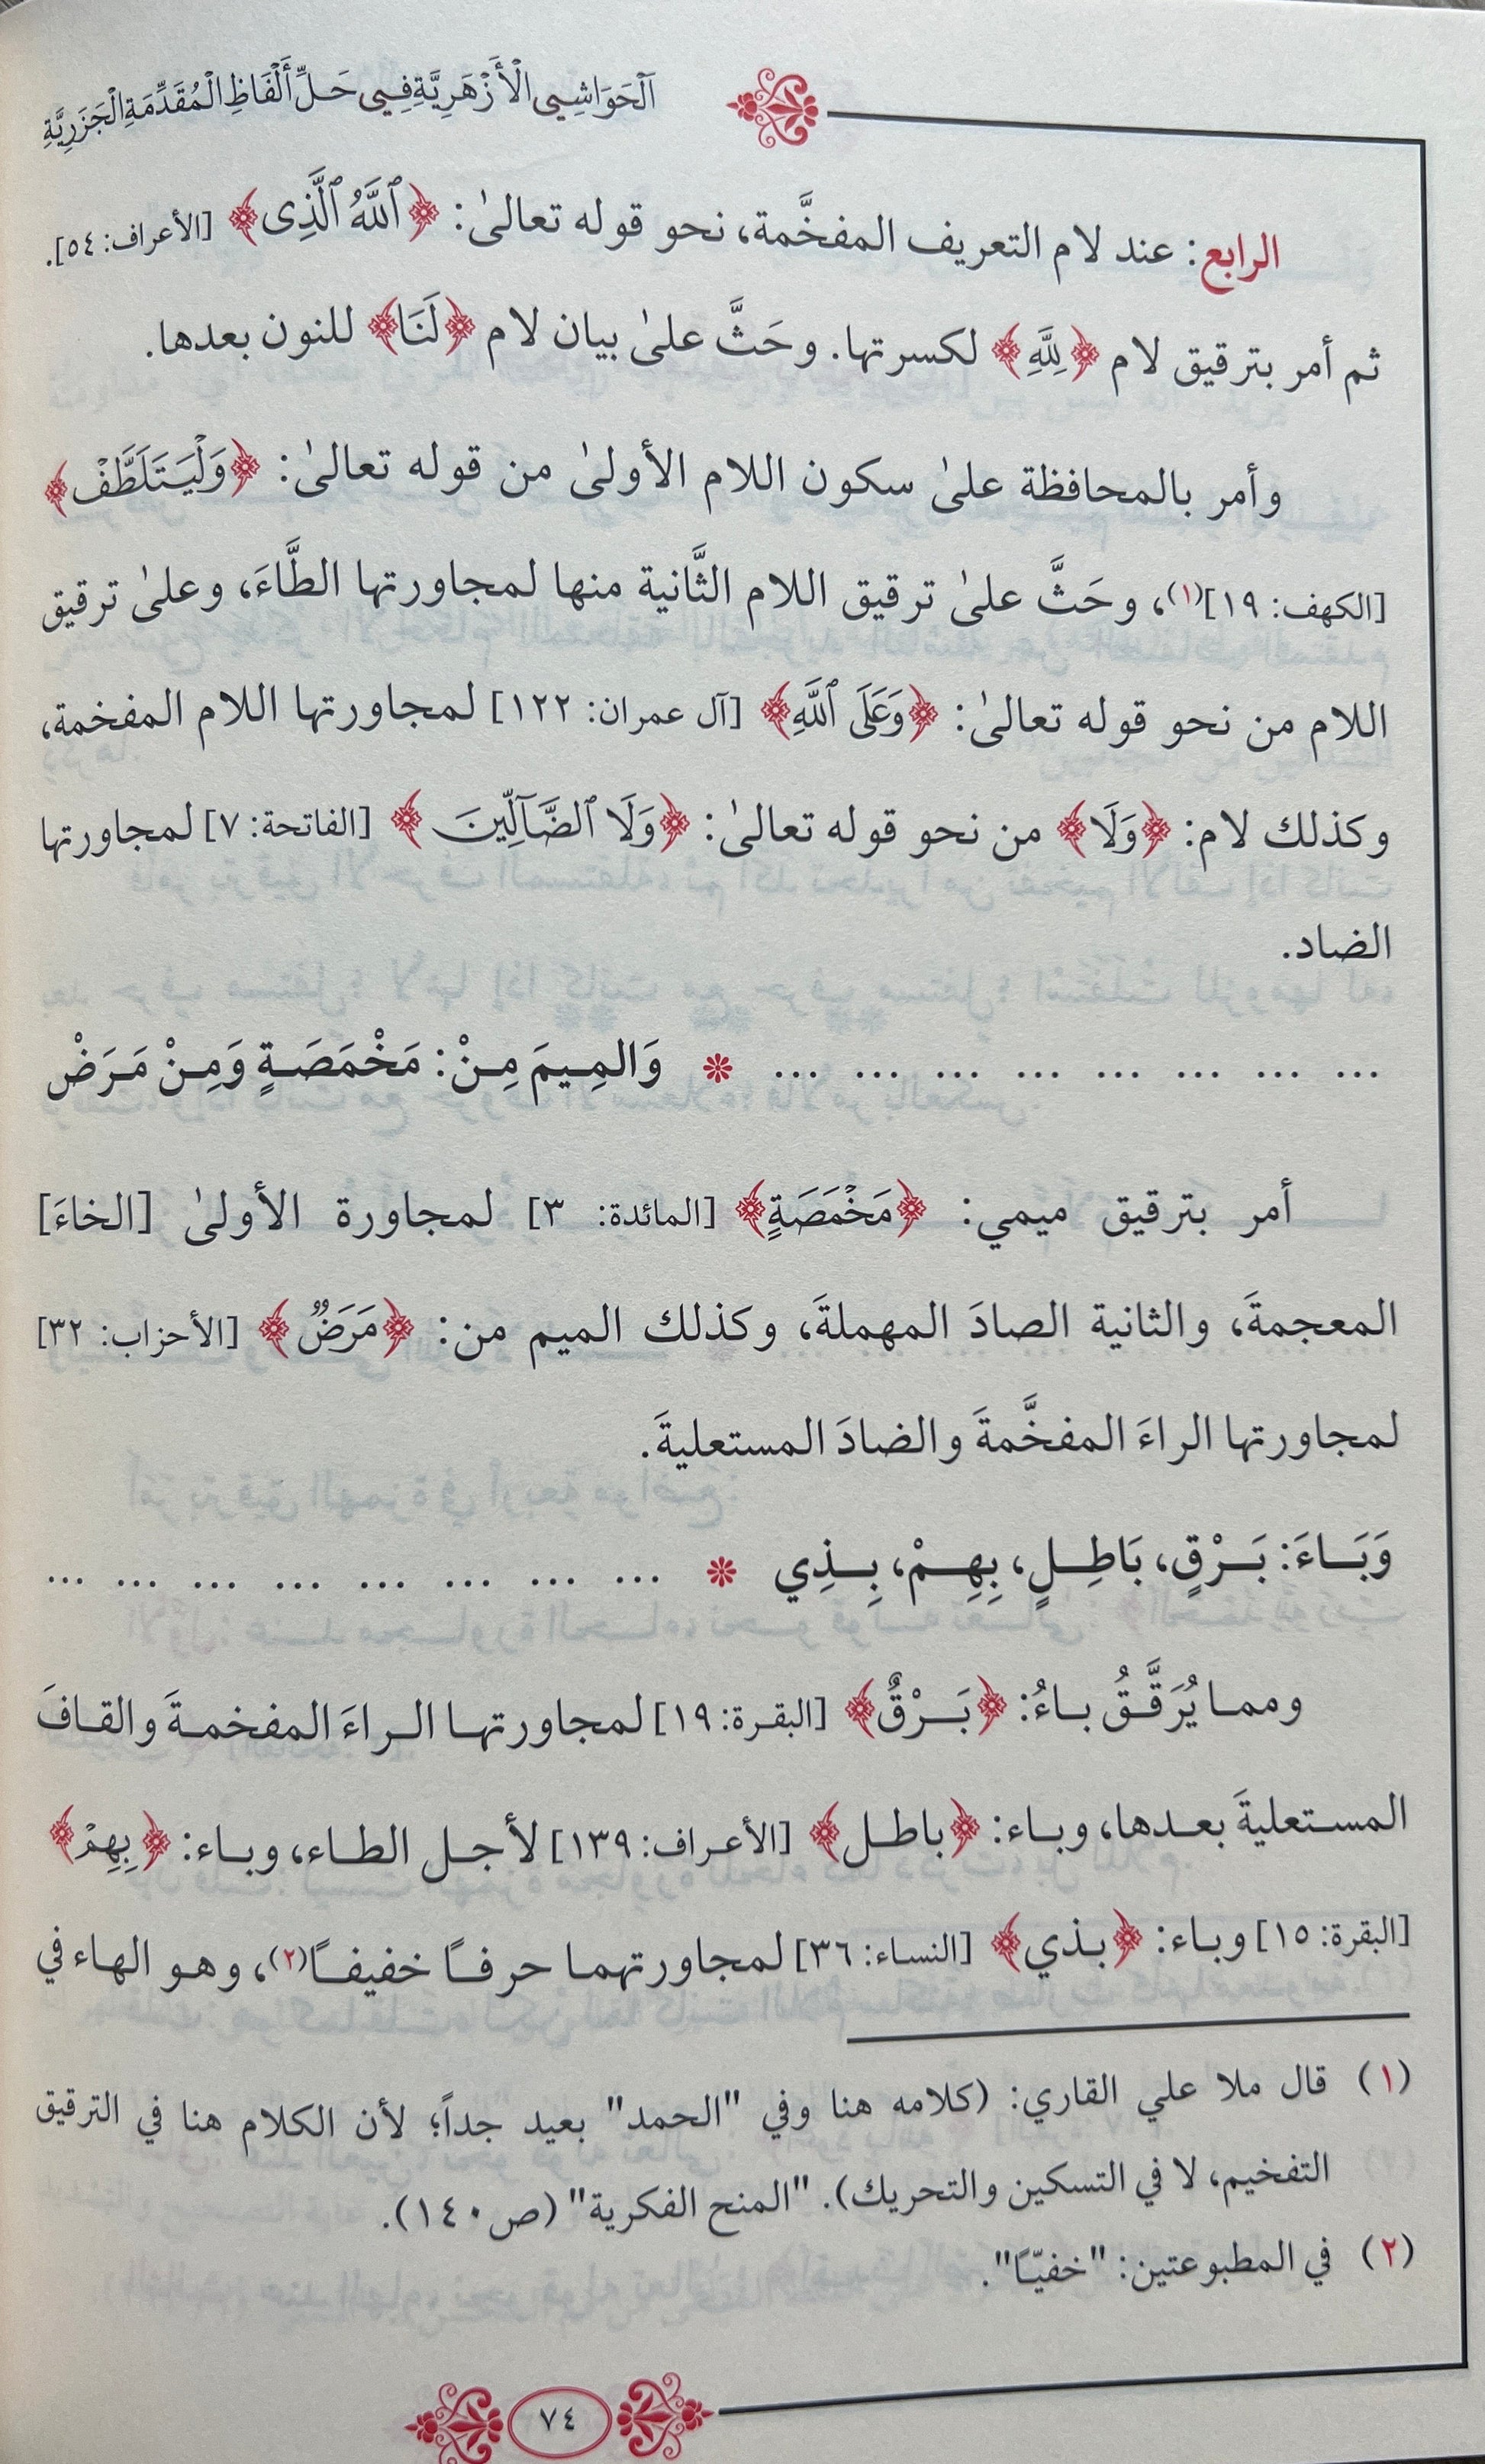 اَلْحَوَاشِي الْأَزْهَرِيَّةِ فِي حَلِّ أَلْفَاظِ الْمُقَدِّمَةِ الْجَزَرِيَّةِ
الرابع: عند لام التعريف المفخَّمة، نحو قوله تعالىٰ: ﴿ٱللَّهُ ٱلَّذِى﴾ [الأعراف: ٥٤].
ثم أمر بترقيق لام ﴿لِلَّهِ﴾ لكسرتها. وحَثَّ علىٰ بيان لام ﴿لَنَا﴾ للنون بعدها.
وأمر بالمحافظة علىٰ سكون اللام الأولىٰ من قوله تعالىٰ: ﴿وَلْيَتَلَطَّفْ﴾
[الكهف: ١٩](١)، وحَثَّ علىٰ ترقيق اللام الثَّانية منها لمجاورتها الطَّاءَ، وعلىٰ ترقيق
اللام من نحو قوله تعالىٰ: ﴿وَعَلَى ٱللَّهِ﴾ [آل عمران: ١٢٢] لمجاورتها اللام المفخمة،
وكذلك لام: ﴿وَلَا﴾ من نحو قوله تعالىٰ: ﴿وَلَا ٱلضَّآلِّينَ﴾ [الفاتحة: ٧] لمجاورتها
الضاد.
... ... ... ... ... ... ... ... * وَالمِيمَ مِنْ: مَخْمَصَةٍ وَمِنْ مَرَضْ
أمر بترقيق ميمي: ﴿مَخْمَصَةٍ﴾ [المائدة: ٣] لمجاورة الأولىٰ [الخاءَ]
المعجمةَ، والثانية الصادَ المهملةَ، وكذلك الميم من: ﴿مَرَضٌ﴾ [الأحزاب: ٣٢]
لمجاورتها الراءَ المفخَّمةَ والضادَ المستعليةَ.
وَبَاءَ: بَرْقٍ، بَاطِلٍ، بِهِمْ، بِذِي * ... ... ... ... ... ... ... ...
ومما يُرَقَّقُ باءُ: ﴿بَرْقٌ﴾ [البقرة: ١٩] لمجاورتها الراءَ المفخمةَ والقافَ
المستعليةَ بعدها، وباء: ﴿باطل﴾ [الأعراف: ١٣٩] لأجل الطاء، وباء: ﴿بِهِمْ﴾
[البقرة: ١٥] وباء: ﴿بذي﴾ [النساء: ٣٦] لمجاورتهما حرفًا خفيفًا(٢)، وهو الهاء في
(١) قال ملا علي القاري: (كلامه هنا وفي "الحمد" بعيد جداً؛ لأن الكلام هنا في الترقيق
التفخيم، لا في التسكين والتحريك). "المنح الفكرية" (ص١٤٠).
(٢) في المطبوعتين: "خفيّاً".
٧٤